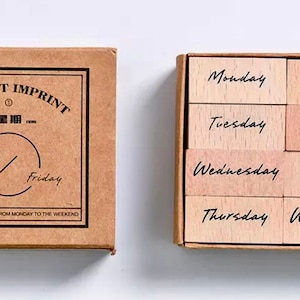 T IMPRINT
①
星期
Friday
FROM MONDAY TO THE WEEKEND
Monday
Tuesday
Wednesday
Thursday
W